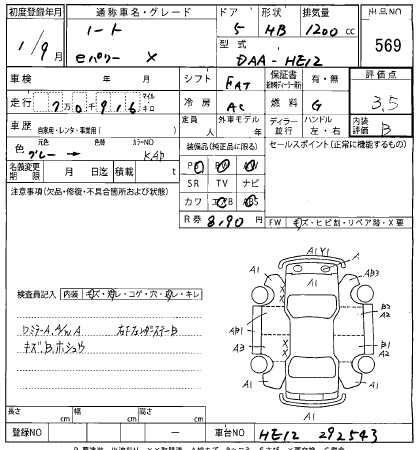 初度登録年月 通称車名・グレード ドア 形状 排気量 出品NO
ノート 5 HB 1200cc
1/9月 eパワー X 型式 569
DAA-HE12
車検 年 月 シフト FAT 保証書 有・無 評価点
走行 70916 マイル キロ 冷房 AC 燃料 G 3.5
車歴 自家用・レンタ・事業用( ) 定員 人 外車モデル 年 ディーラー 並行 ハンドル 左・右 内装評価 B
色 元色 色替 カラーNO 装備品(純正品に限る) セールスポイント(正常に機能するもの)
グレー → KAD PS PW AW
名義変更期限 月 日迄 積載 t SR TV ナビ
注意事項(欠品・修復・不具合箇所および状態) カワ エアB ABS
R券 8,90 円 FW キズ・ヒビ割・リペア跡・X要
A1 Y1
A
A1 AB3
検査員記入 内装 キズ・汚レ・コゲ・穴・切レ・キレ
A1 A1
B2
A2
AB1
A3 B1
A2
キズB,ホシュウ
A1 A1
A1
長さ cm 幅 cm 高さ cm
登録NO 車台NO HE12 292543